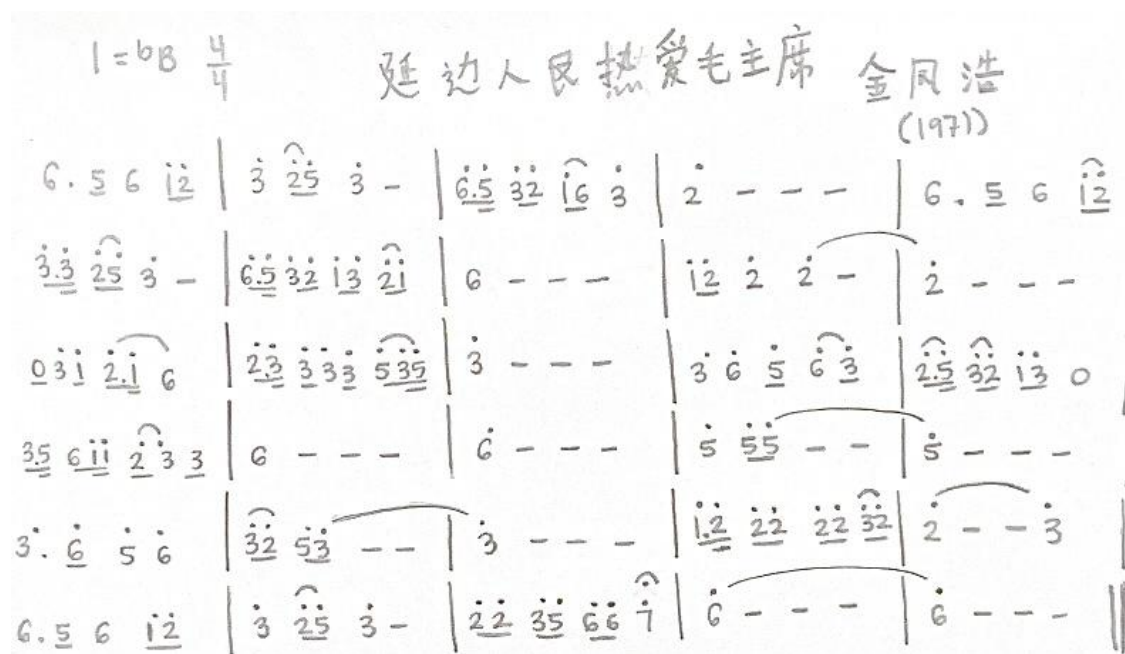 1=bB 4/4 延边人民热爱毛主席 金凤浩
(1971)
6. 5 6 i̇2̇ | 3̇ 2̇5̇ 3̇ - | 6̇.5̇ 3̇2̇ i̇6 3̇ | 2̇ - - - | 6. 5 6 i̇2̇
3̇.3̇ 2̇5̇ 3̇ - | 6̇.5̇ 3̇2̇ i̇3̇ 2̇i̇ | 6 - - - | i̇2̇ 2̇ 2̇ - | 2̇ - - -
0 3̇ i̇ 2̇.i̇ 6 | 2̇.3̇ 3̇ 3̇ 3̇ 5̇3̇5̇ | 3̇ - - - | 3̇ 6̇ 5̇ 6̇ 3̇ | 2̇.5̇ 3̇2̇ i̇3̇ 0
3.5 6 i̇i̇ 2̇ 3̇ 3 | 6 - - - | 6̇ - - - | 5̇ 5̇5̇ - - | 5̇ - - -
3̇. 6̇ 5̇ 6̇ | 3̇2̇ 5̇3̇ - - | 3̇ - - - | i̇.2̇ 2̇2̇ 2̇2̇ 3̇2̇ | 2̇ - - 3̇
6. 5 6 i̇2̇ | 3̇ 2̇5̇ 3̇ - | 2̇2̇ 3̇5̇ 6̇6̇ 7̇ | 6̇ - - - | 6̇ - - - ||